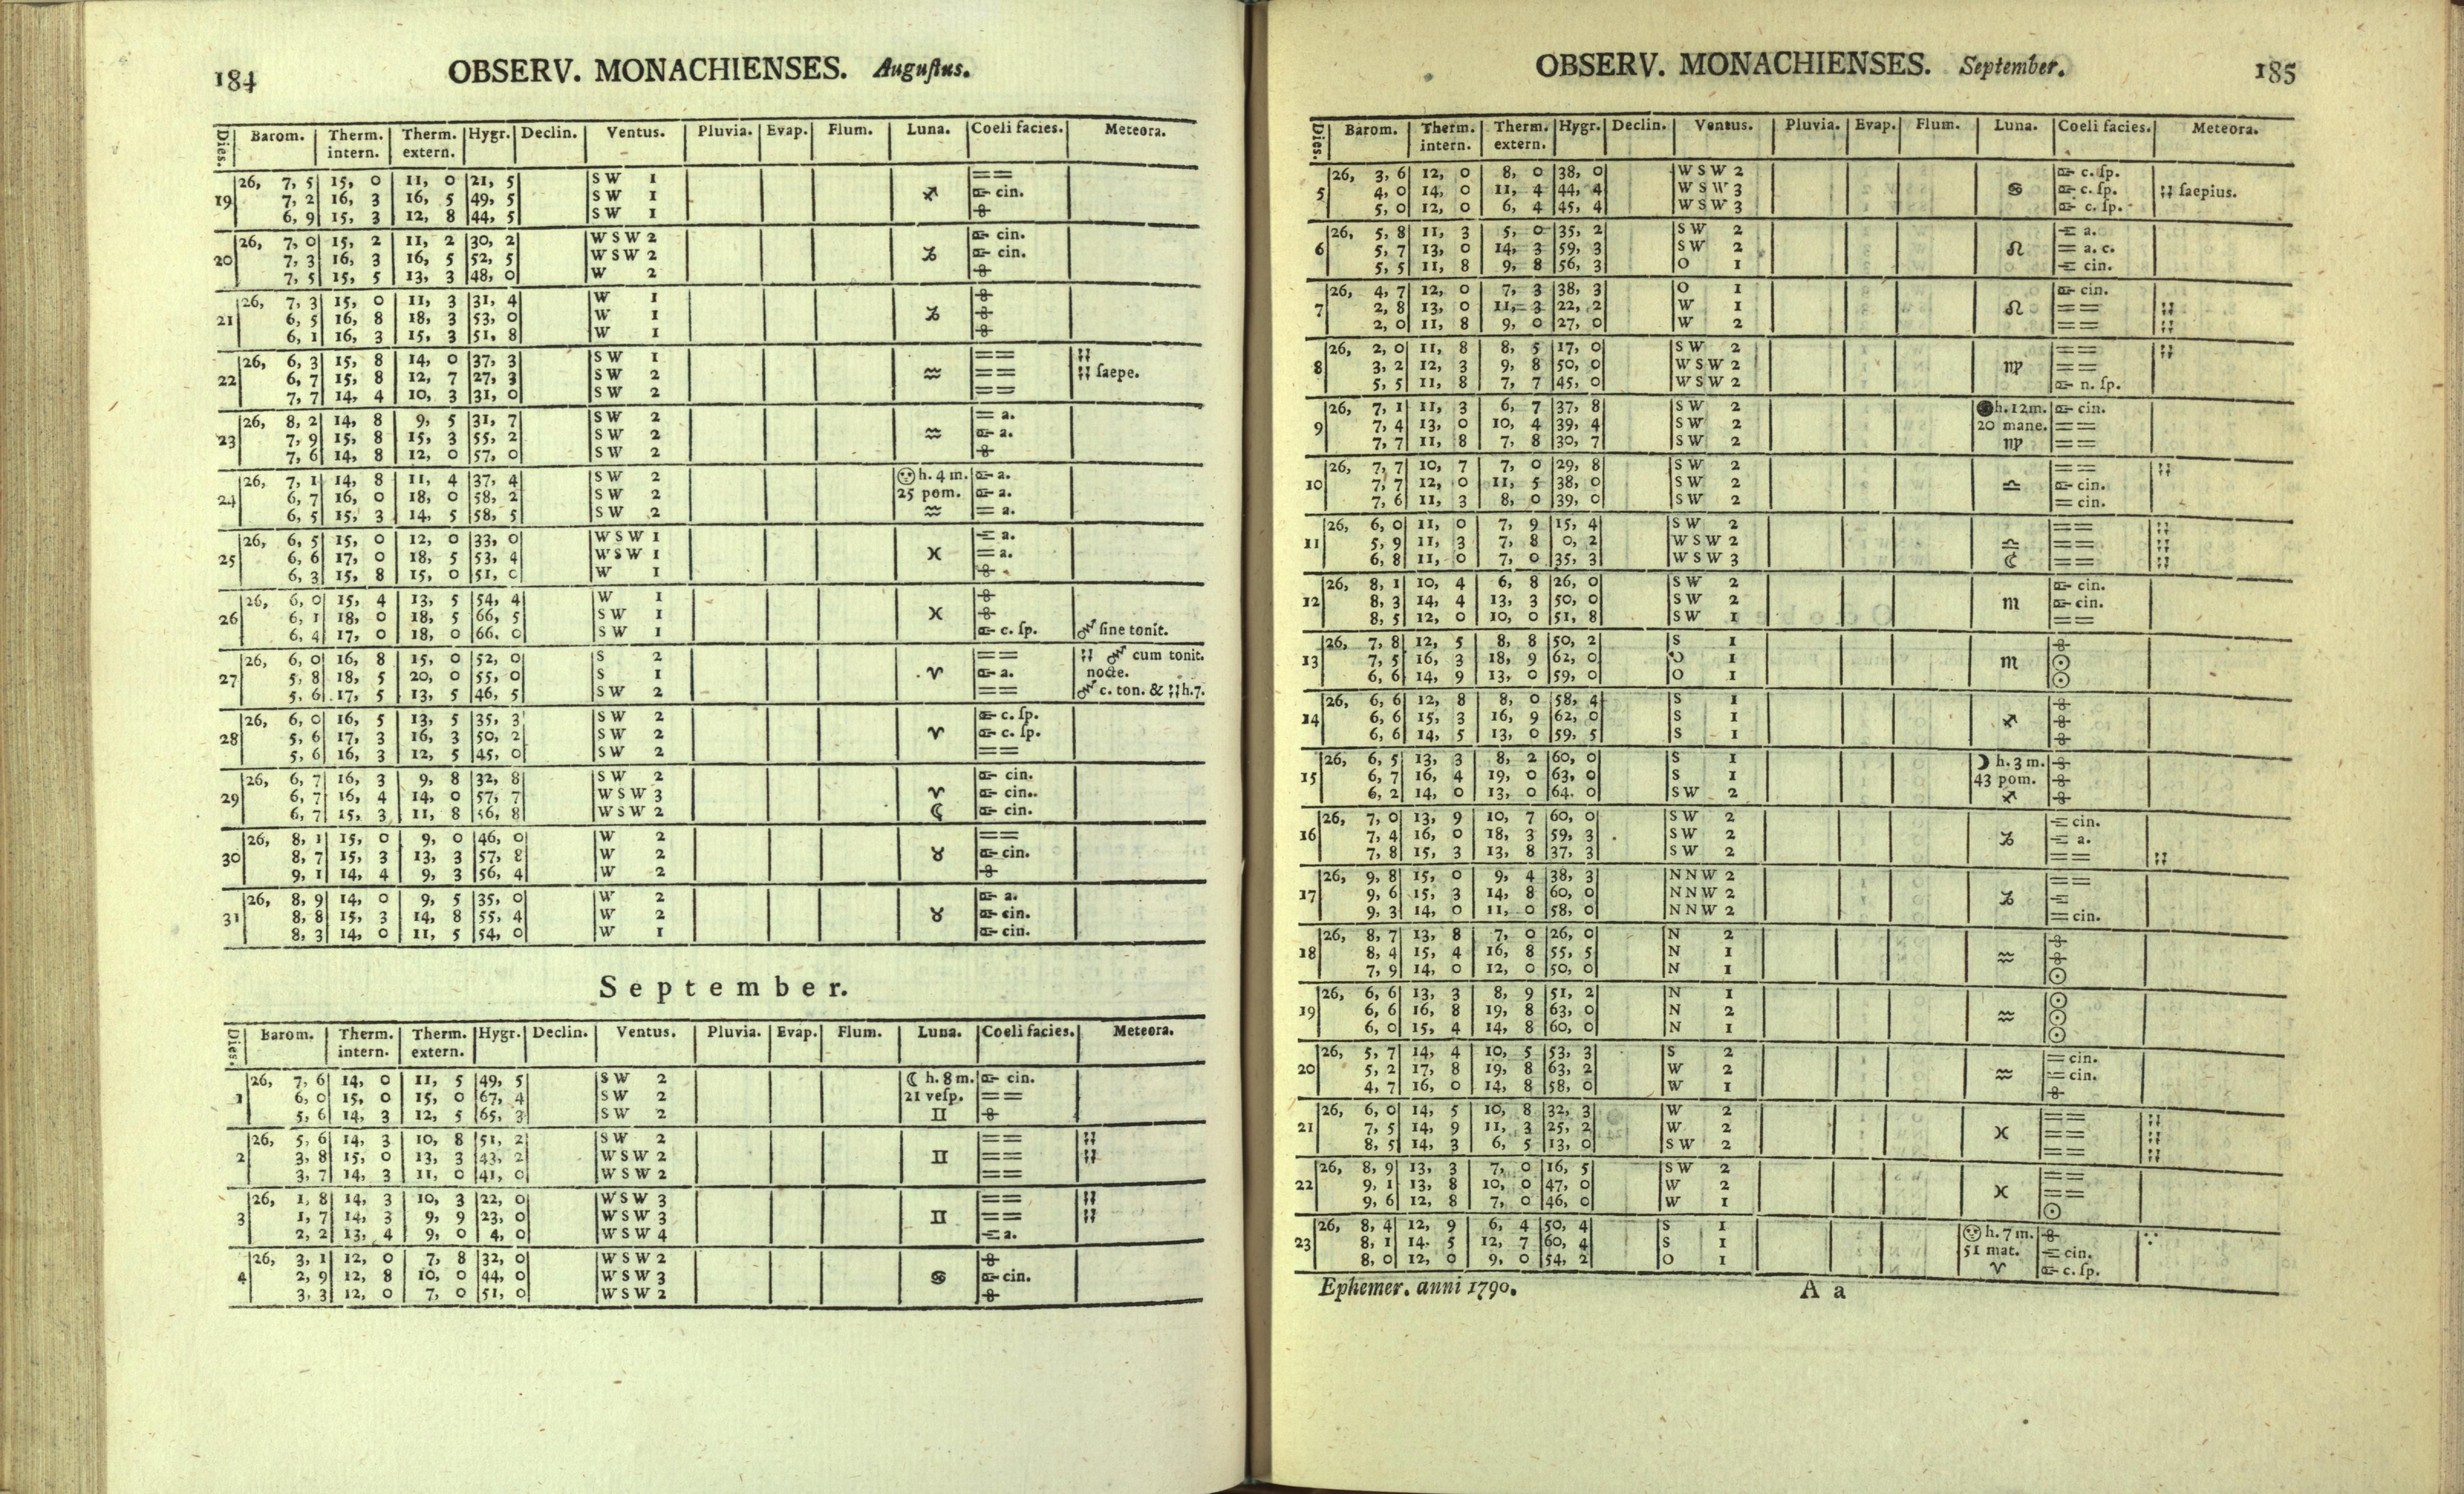 184 OBSERV. MONACHIENSES. Auguſtus.
Dies. Barom. Therm. intern. Therm. extern. Hygr. Declin. Ventus. Pluvia. Evap. Flum. Luna. Coeli facies. Meteora.
26, 7, 5 15, 0 11, 0 21, 5 S W 1 ==
19 7, 2 16, 3 16, 5 49, 5 S W 1 ♐ cin.
6, 9 15, 3 12, 8 44, 5 S W 1
26, 7, 0 15, 2 11, 2 30, 2 W S W 2 cin.
20 7, 3 16, 3 16, 5 52, 5 W S W 2 ♑ cin.
7, 5 15, 5 13, 3 48, 0 W 2
26, 7, 3 15, 0 11, 3 31, 4 W 1
21 6, 5 16, 8 18, 3 53, 0 W 1 ♑
6, 1 16, 3 15, 3 51, 8 W 1
26, 6, 3 15, 8 14, 0 37, 3 S W 1 ==
22 6, 7 15, 8 12, 7 27, 3 S W 2 ♒ == ſaepe.
7, 7 14, 4 10, 3 31, 0 S W 2 ==
26, 8, 2 14, 8 9, 5 31, 7 S W 2 = a.
23 7, 9 15, 8 15, 3 55, 2 S W 2 ♒ a.
7, 6 14, 8 12, 0 57, 0 S W 2
26, 7, 1 14, 8 11, 4 37, 4 S W 2 h. 4 m. a.
24 6, 7 16, 0 18, 0 58, 2 S W 2 25 pom. a.
6, 5 15, 3 14, 5 58, 5 S W 2 ♒ = a.
26, 6, 5 15, 0 12, 0 33, 0 W S W 1 a.
25 6, 6 17, 0 18, 5 53, 4 W S W 1 ♓ = a.
6, 3 15, 8 15, 0 51, 0 W 1
26, 6, 0 15, 4 13, 5 54, 4 W 1
26 6, 1 18, 0 18, 5 66, 5 S W 1 ♓
6, 4 17, 0 18, 0 66. 0 S W 1 c. ſp. ſine tonit.
26, 6, 0 16, 8 15, 0 52, 0 S 2 == cum tonit.
27 5, 8 18, 5 20, 0 55, 0 S 1 ♈ a. nocte.
5, 6 17, 5 13, 5 46, 5 S W 2 == c. ton. & h. 7.
26, 6, 0 16, 5 13, 5 35, 3 S W 2 c. ſp.
28 5, 6 17, 3 16, 3 50, 2 S W 2 ♈ c. ſp.
5, 6 16, 3 12, 5 45, 0 S W 2 ==
26, 6, 7 16, 3 9, 8 32, 8 S W 2 cin.
29 6, 7 16, 4 14, 0 57, 7 W S W 3 ♈ cin.
6, 7 15, 3 11, 8 56, 8 W S W 2 ☾ cin.
26, 8, 1 15, 0 9, 0 46, 0 W 2 ==
30 8, 7 15, 3 13, 3 57, 8 W 2 ♉ cin.
9, 1 14, 4 9, 3 56, 4 W 2
26, 8, 9 14, 0 9, 5 35, 0 W 2 a.
31 8, 8 15, 3 14, 8 55, 4 W 2 ♉ cin.
8, 3 14, 0 11, 5 54, 0 W 1 cin.
September.
Dies. Barom. Therm. intern. Therm. extern. Hygr. Declin. Ventus. Pluvia. Evap. Flum. Luna. Coeli facies. Meteora.
26, 7, 6 14, 0 11, 5 49, 5 S W 2 ☾ h. 8 m. cin.
1 6, 0 15, 0 15, 0 67, 4 S W 2 21 veſp. ==
5, 6 14, 3 12, 5 65, 3 S W 2 ♊
26, 5, 6 14, 3 10, 8 51, 2 S W 2 ==
2 3, 8 15, 0 13, 3 43, 2 W S W 2 ♊ ==
3, 7 14, 3 11, 0 41, 0 W S W 2 ==
26, 1, 8 14, 3 10, 3 22, 0 W S W 3 ==
3 1, 7 14, 3 9, 9 23, 0 W S W 3 ♊ ==
2, 2 13, 4 9, 0 4, 0 W S W 4 a.
26, 3, 1 12, 0 7, 8 32, 0 W S W 2
4 2, 9 12, 8 10, 0 44, 0 W S W 3 ♋ cin.
3, 3 12, 0 7, 0 51, 0 W S W 2
OBSERV. MONACHIENSES. September. 185
Dies. Barom. Therm. intern. Therm. extern. Hygr. Declin. Ventus. Pluvia. Evap. Flum. Luna. Coeli facies. Meteora.
26, 3, 6 12, 0 8, 0 38, 0 W S W 2 c. ſp.
5 4, 0 14, 0 11, 4 44, 4 W S W 3 ♋ c. ſp. ſaepius.
5, 0 12, 0 6, 4 45, 4 W S W 3 c. ſp.
26, 5, 8 11, 3 5, 0 35, 2 S W 2 a.
6 5, 7 13, 0 14, 3 59, 3 S W 2 ♌ = a. c.
5, 5 11, 8 9, 8 56, 3 O 1 cin.
26, 4, 7 12, 0 7, 3 38, 3 O 1 cin.
7 2, 8 13, 0 11, 3 22, 2 W 1 ♌ ==
2, 0 11, 8 9, 0 27, 0 W 2 ==
26, 2, 0 11, 8 8, 5 17, 0 S W 2 ==
8 3, 2 12, 3 9, 8 50, 0 W S W 2 ♍ ==
5, 5 11, 8 7, 7 45, 0 W S W 2 n. ſp.
26, 7, 1 11, 3 6, 7 37, 8 S W 2 ● h. 12 m. cin.
9 7, 4 13, 0 10, 4 39, 4 S W 2 20 mane. ==
7, 7 11, 8 7, 8 30, 7 S W 2 ♍ ==
26, 7, 7 10, 7 7, 0 29, 8 S W 2 ==
10 7, 7 12, 0 11, 5 38, 0 S W 2 ♎ cin.
7, 6 11, 3 8, 0 39, 0 S W 2 = cin.
26, 6, 0 11, 0 7, 9 15, 4 S W 2 ==
11 5, 9 11, 3 7, 8 0, 2 W S W 2 ♎ ==
6, 8 11, 0 7, 0 35, 3 W S W 3 ☾ ==
26, 8, 1 10, 4 6, 8 26, 0 S W 2 cin.
12 8, 3 14, 4 13, 3 50, 0 S W 2 ♏ cin.
8, 5 12, 0 10, 0 51, 8 S W 1 ==
26, 7, 8 12, 5 8, 8 50, 2 S 1
13 7, 5 16, 3 18, 9 62, 0 O 1 ♏ ☉
6, 6 14, 9 13, 0 59, 0 O 1 ☉
26, 6, 6 12, 8 8, 0 58, 4 S 1
14 6, 6 15, 3 16, 9 62, 0 S 1 ♐
6, 6 14, 5 13, 0 59, 5 S 1
26, 6, 5 13, 3 8, 2 60, 0 S 1 ☽ h. 3 m.
15 6, 7 16, 4 19, 0 63, 0 S 1 43 pom.
6, 2 14, 0 13, 0 64. 0 S W 2 ♐
26, 7, 0 13, 9 10, 7 60, 0 S W 2 cin.
16 7, 4 16, 0 18, 3 59, 3 S W 2 ♑ a.
7, 8 15, 3 13, 8 37, 3 S W 2 ==
26, 9, 8 15, 0 9, 4 38, 3 N N W 2 ==
17 9, 6 15, 3 14, 8 60, 0 N N W 2 ♑
9, 3 14, 0 11, 0 58, 0 N N W 2 = cin.
26, 8, 7 13, 8 7, 0 26, 0 N 2
18 8, 4 15, 4 16, 8 55, 5 N 1 ♒
7, 9 14, 0 12, 0 50, 0 N 1 ☉
26, 6, 6 13, 3 8, 9 51, 2 N 1 ☉
19 6, 6 16, 8 19, 8 63, 0 N 2 ♒ ☉
6, 0 15, 4 14, 8 60, 0 N 1 ☉
26, 5, 7 14, 4 10, 5 53, 3 S 2 = cin.
20 5, 2 17, 8 19, 8 63, 2 W 2 ♒ = cin.
4, 7 16, 0 14, 8 58, 0 W 1
26, 6, 0 14, 5 10, 8 32, 3 W 2 ==
21 7, 5 14, 9 11, 3 25, 2 W 2 ♓ ==
8, 5 14, 3 6, 5 13, 0 S W 2 ==
26, 8, 9 13, 3 7, 0 16, 5 S W 2 ==
22 9, 1 13, 8 10, 0 47, 0 W 2 ♓ ==
9, 6 12, 8 7, 0 46, 0 W 1 ☉
26, 8, 4 12, 9 6, 4 50, 4 S 1 h. 7 m.
23 8, 1 14. 5 12, 7 60, 4 S 1 51 mat. cin.
8, 0 12, 0 9, 0 54, 2 O 1 ♈ c. ſp.
Ephemer. anni 1790. A a